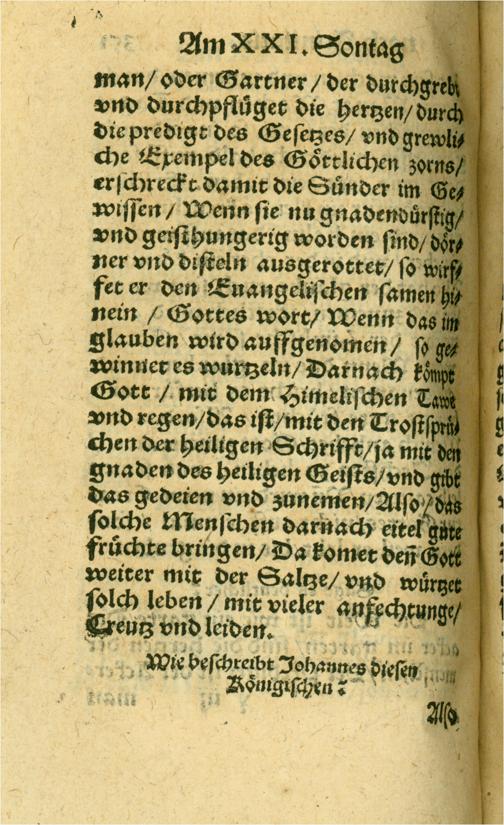 Am XXI. Sontag
man/ oder Gartner / der durchgrebt
vnd durchpflüget die hertzen/ durch
die predigt des Gesetzes/ vnd grewli⸗
che Exempel des Göttlichen zorns/
erschreckt damit die Sünder im Ge⸗
wissen / Wenn sie nu gnadendürstig/
vnd geisthungerig worden sind/ dör⸗
ner vnd disteln ausgerottet/ so wirf⸗
fet er den Euangelischen samen hi⸗
nein / Gottes wort/ Wenn das im
glauben wird auffgenomen/ so ge⸗
winnet es wurtzeln/ Darnach kömpt
Gott / mit dem Himelischen Tawe
vnd regen/ das ist/ mit den Trostsprü⸗
chen der heiligen Schrifft/ ja mit den
gnaden des heiligen Geists/ vnd gibt
das gedeien vnd zunemen/ Also/ das
solche Menschen darnach eitel gute
früchte bringen/ Da komet deñ Gott
weiter mit der Saltze/ vnd würtzet
solch leben / mit vieler anfechtunge/
Creutz vnd leiden.
Wie beschreibt Johannes diesen
Königischen?
Also